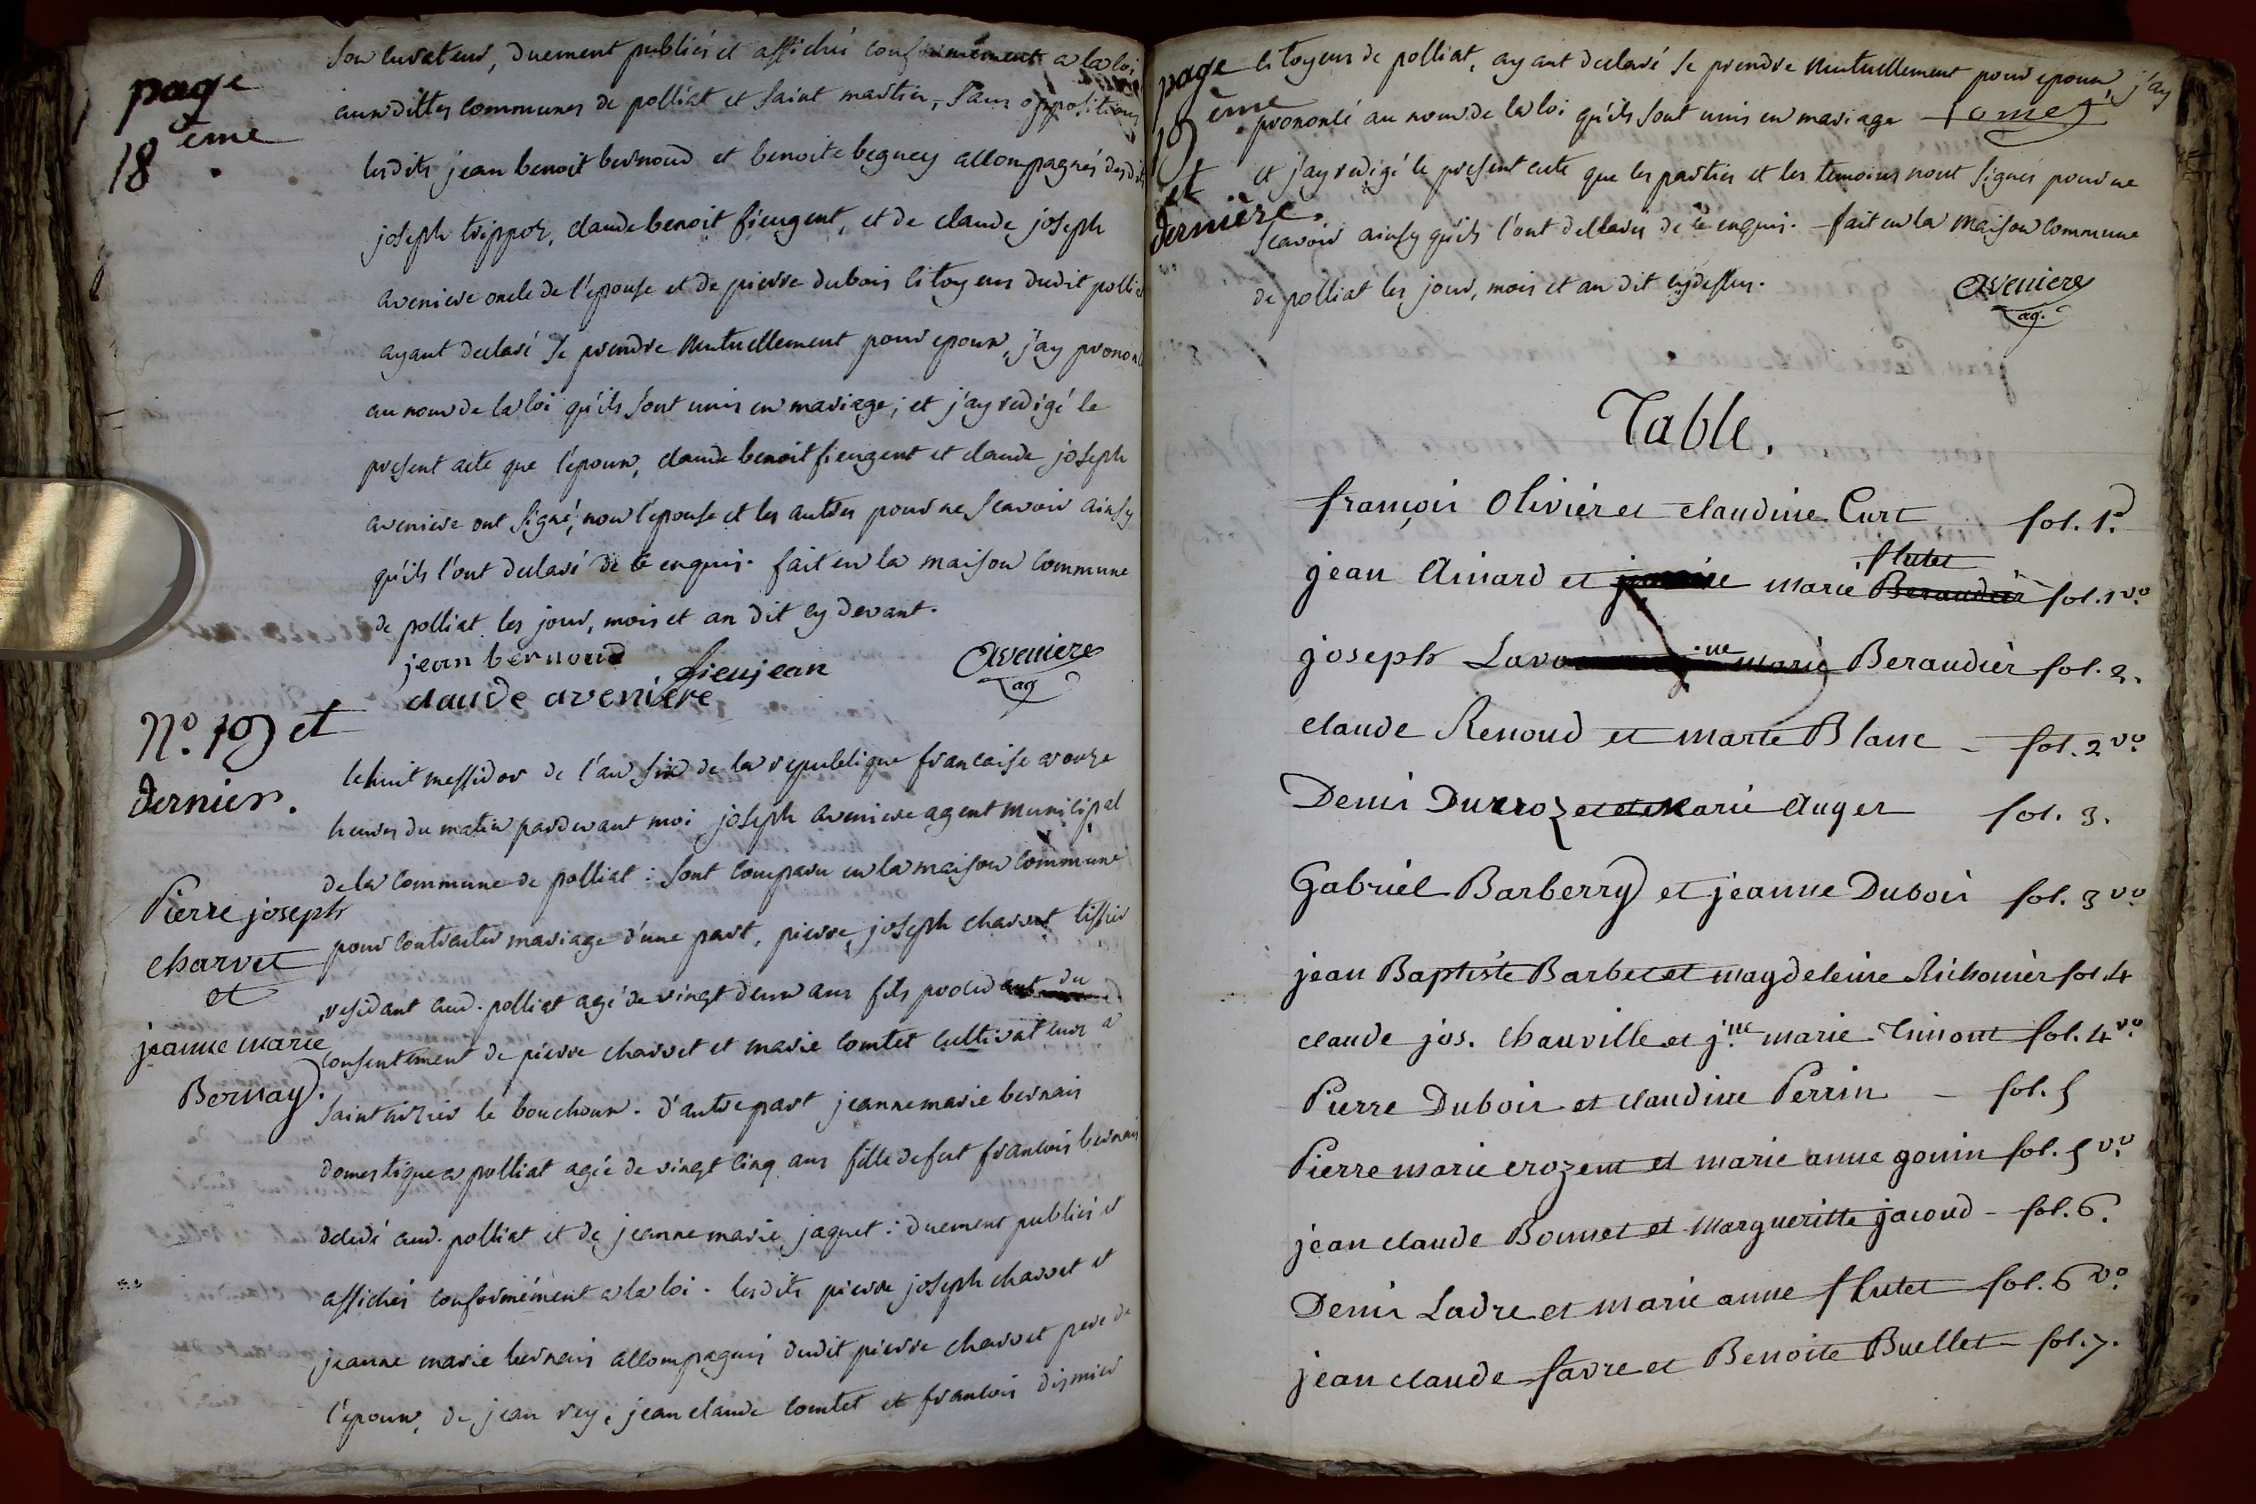 page
18 ême
son curateur, duement publiés et affichés conformément a la loi
auxdittes communes de polliat et saint martin, sans oppositions
lesdits jean benoit bernoud et benoite beguey accompagnés desdits
joseph trippoz, claude benoit fieugent, et de claude joseph
aveniere oncle de l'epouse et de pierre dubois citoyens dudit polliat
ayant declaré se prendre mutuellement pour epoux, j'ay prononcé
au nom de la loi qu'ils sont unis en mariage; et j'ay redigé le
present acte que l'epoux, claude benoit fieugent et claude joseph
aveniere ont signé, non l'epouse et les autres pour ne scavoir ainsy
qu'ils l'ont declaré de ce enquis. fait en la maison commune
de polliat les jour, mois et an dit cy devant.
jean bernoud fieujean Aveniere
claude aveniere ag
N.o 19 et
dernier.
Pierre joseph
charvet
et
jeanne marie
Bernay.
le huit messidor de l'an six de la republique francaise a onze
heures du matin pardevant moi joseph aveniere agent municipal
de la commune de polliat : sont comparu en la maison commune
pour contracter mariage d'une part, pierre joseph charvet tissier
residant aud. polliat agé de vingt deux ans fils procedant du
consentement de pierre charvet et marie comtet cultivateurs a
saint le bouchoux. d'autre part jeanne marie bernais
domestique a polliat agée de vingt cinq ans fille de feu francois bernais
decedé aud. polliat et de jeanne marie jaquet : duement publiés et
affichés conformément a la loi. lesdits pierre joseph charvet et
jeanne marie bernais accompagnés dudit pierre charvet pere de
l'epoux, de jean rey, jean claude comtet et francois dismier
page
19 ême
et
derniere.
citoyens de polliat, ayant declaré se prendre mutuellement pour epoux, j'ay
prononcé au nom de la loi qu'ils sont unis en mariage
et j'ay redigé le present acte que les parties et les temoins n'ont signés pour ne
scavoir ainsy qu'ils l'ont declarés de ce enquis. fait en la maison commune
de polliat les jour, mois et an dit cy dessus.
Aveniere
ag.
Table.
françois Olivier et claudine Curt fol. 1.
flutet
jean Ainard et marie Beraudier fol. 1 v.o
joseph Lavo marie Beraudier fol. 2.
claude Renoud et marie Blanc - fol. 2 v.o
Denis Durroz et marie Auger fol. 3.
Gabriel Barberry et jeanne Dubois fol. 3 v.o
jean Baptiste Barbet et magdeleine Richonier fol. 4
claude jos. Chanville et j.ne marie fol. 4 v.o
Pierre Dubois et claudine Perrin - fol. 5
Pierre marie crozent et marie anne gonin fol. 5 v.o
jean claude Bonnet et Margueritte jacoud - fol. 6.
Denis Ladre et marie anne flutet fol. 6 v.o
jean claude favre et Benoite Buellet fol. 7.